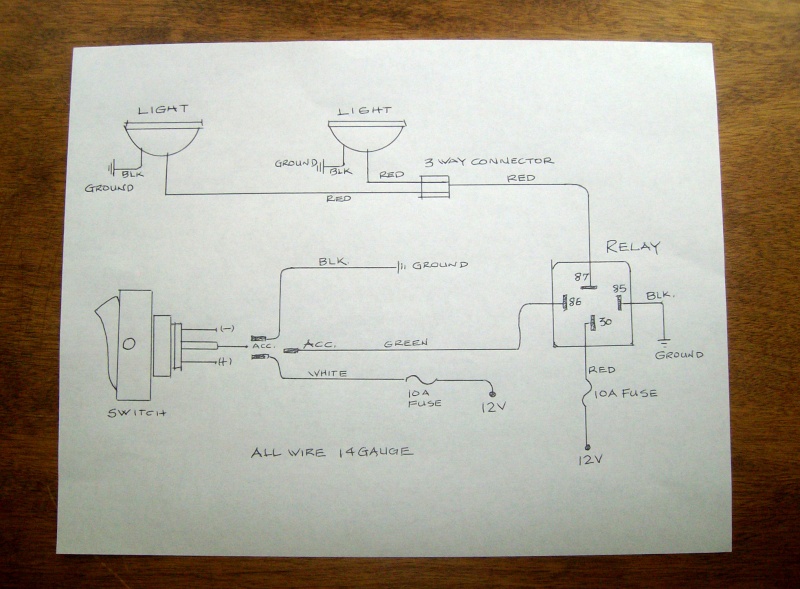 LIGHT
LIGHT
3 WAY CONNECTOR
GROUND
BLK
GROUND
BLK
RED
RED
RED
RELAY
BLK
GROUND
87
85
86
BLK.
30
(-)
ACC.
ACC.
GREEN
(+)
GROUND
WHITE
RED
10A
FUSE
12V
10A FUSE
SWITCH
ALL WIRE 14 GAUGE
12V